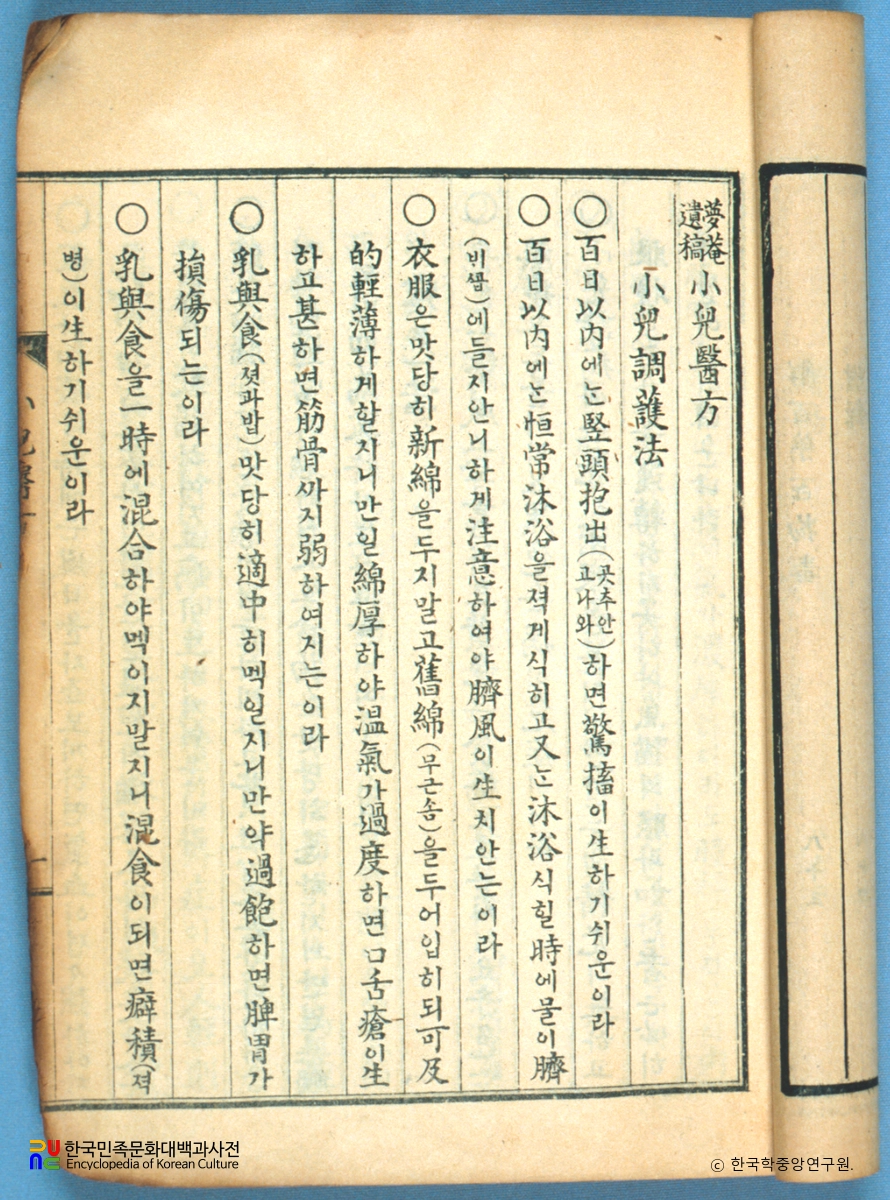 夢菴遺稿 小兒醫方
小兒調護法
○百日以内에는竪頭抱出(곳추안고나와)하면驚搐이生하기쉬운이라
○百日以内에는恒常沐浴을젹게식히고又는沐浴식힐時에물이臍
(비ᄭᅩᆸ)에들지안니하게注意하여야臍風이生치안는이라
○衣服은맛당히新綿을두지말고舊綿(무근솜)을두어입히되可及
的輕薄하게할지니만일綿厚하야温氣가過度하면口舌瘡이生
하고甚하면筋骨ᄭᅡ지弱하여지는이라
○乳與食(젓과밥)맛당히適中히멕일지니만약過飽하면脾胃가
損傷되는이라
○乳與食을一時에混合하야멕이지말지니混食이되면癖積(젹
병)이生하기쉬운이라
小兒醫方
한국민족문화대백과사전
Encyclopedia of Korean Culture
© 한국학중앙연구원.